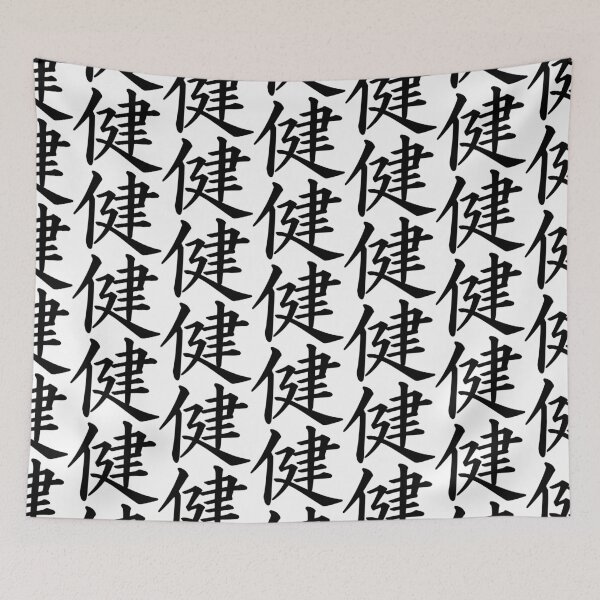 健健健健健
健健健健健
健健健健健
健健健健健
健健健健健